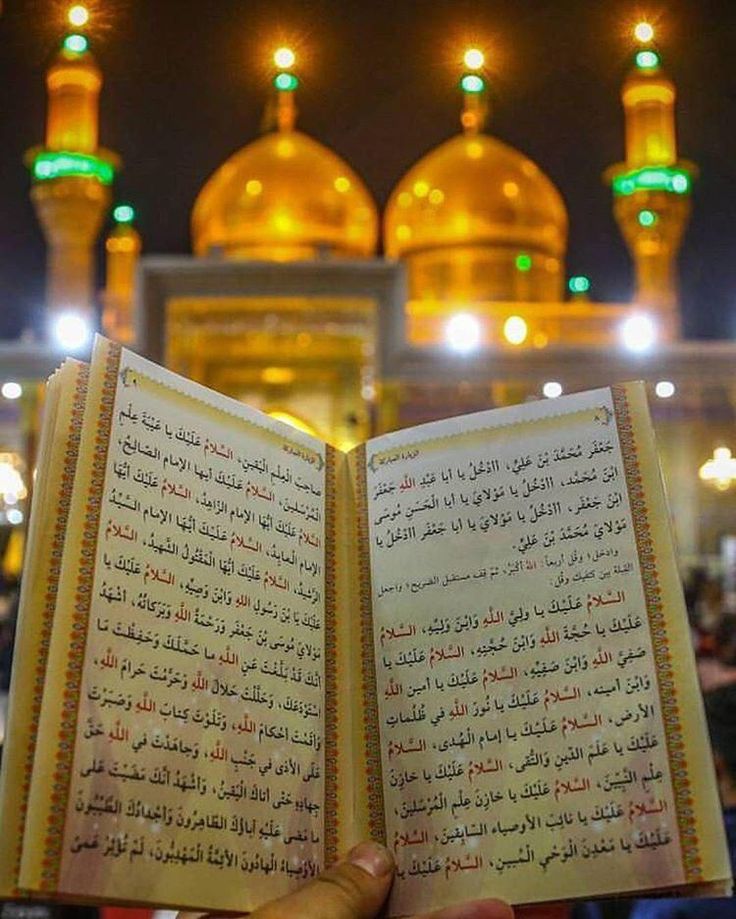 ٨
الزيارة المباركة
جَعْفَرٍ مُحَمَّدَ بْنَ عَلِيٍّ، أَأَدْخُلُ يا أبا عَبْدِ اللَّهِ جَعْفَرَ
ابْنَ مُحَمَّدٍ، أَأَدْخُلُ يا مَوْلايَ يا أبا الْحَسَنِ مُوسَى
ابْنَ جَعْفَرٍ، أَأَدْخُلُ يا مَوْلايَ يا أبا جَعْفَرٍ أَأَدْخُلُ يا
مَوْلايَ مُحَمَّدَ بْنَ عَلِيٍّ.
وادخل؛ وقُل أربعاً: اللهُ أكْبَرُ، ثمّ قِف مستقبل الضريح؛ واجعل
القبلة بين كتفيك وقُل:
السَّلامُ عَلَيْكَ يا وَلِيَّ اللَّهِ وَابْنَ وَلِيِّهِ، السَّلامُ
عَلَيْكَ يا حُجَّةَ اللَّهِ وَابْنَ حُجَّتِهِ، السَّلامُ عَلَيْكَ يا
صَفِيَّ اللَّهِ وَابْنَ صَفِيِّهِ، السَّلامُ عَلَيْكَ يا أمين اللَّهِ
وَابْنَ أمينه، السَّلامُ عَلَيْكَ يا نُورَ اللَّهِ في ظُلُماتِ
الأرضِ، السَّلامُ عَلَيْكَ يا إمام الْهُدى، السَّلامُ
عَلَيْكَ يا عَلَمَ الدّينِ وَالتُّقى، السَّلامُ عَلَيْكَ يا خازِنَ
عِلْمِ النَّبِيّينَ، السَّلامُ عَلَيْكَ يا خازِنَ عِلْمِ الْمُرْسَلينَ،
السَّلامُ عَلَيْكَ يا نائِبَ الأوصياءِ السّابِقينَ، السَّلامُ
عَلَيْكَ يا مَعْدِنَ الْوَحْيِ الْمُبينِ، السَّلامُ عَلَيْكَ يا
٩
الزيارة المباركة
صاحِبَ الْعِلْمِ الْيَقينِ، السَّلامُ عَلَيْكَ يا عَيْبَةَ عِلْمِ
الْمُرْسَلينَ، السَّلامُ عَلَيْكَ أيها الإمام الصّالِحُ،
السَّلامُ عَلَيْكَ أيُّهَا الإمام الزّاهِدُ، السَّلامُ عَلَيْكَ أيُّهَا
الإمام الْعابِدُ، السَّلامُ عَلَيْكَ أيُّهَا الإمام السَّيِّدُ
الرَّشيدُ، السَّلامُ عَلَيْكَ أيُّهَا الْمَقْتُولُ الشَّهيدُ، السَّلامُ
عَلَيْكَ يَا بْنَ رَسُولِ اللهِ وَابْنَ وَصِيِّهِ، السَّلامُ عَلَيْكَ يا
مَوْلايَ مُوسَى بْنَ جَعْفَرٍ وَرَحْمَةُ اللَّهِ وَبَرَكاتُهُ، أشْهَدُ
أنَّكَ قَدْ بَلَّغْتَ عَنِ اللَّهِ ما حَمَّلَكَ وَحَفِظْتَ مَا
اسْتَوْدَعَكَ، وَحَلَّلْتَ حَلالَ اللَّهِ وَحَرَّمْتَ حَرامَ اللَّهِ،
وَأقَمْتَ أحْكامَ اللَّهِ، وَتَلَوْتَ كِتابَ اللَّهِ وَصَبَرْتَ
عَلَى الأذى في جَنْبِ اللَّهِ، وَجاهَدْتَ في اللَّهِ حَقَّ
جِهادِهِ حَتّى أتاكَ الْيَقينُ، وَأشْهَدُ أنَّكَ مَضَيْتَ عَلى
ما مَضى عَلَيْهِ آباؤُكَ الطّاهِرُونَ وَأجْدادُكَ الطَّيِّبُونَ
الأوْصِياءُ الْهادُونَ الأئِمَّةُ الْمَهْدِيُّونَ، لَمْ تُؤْثِرْ عَمىً